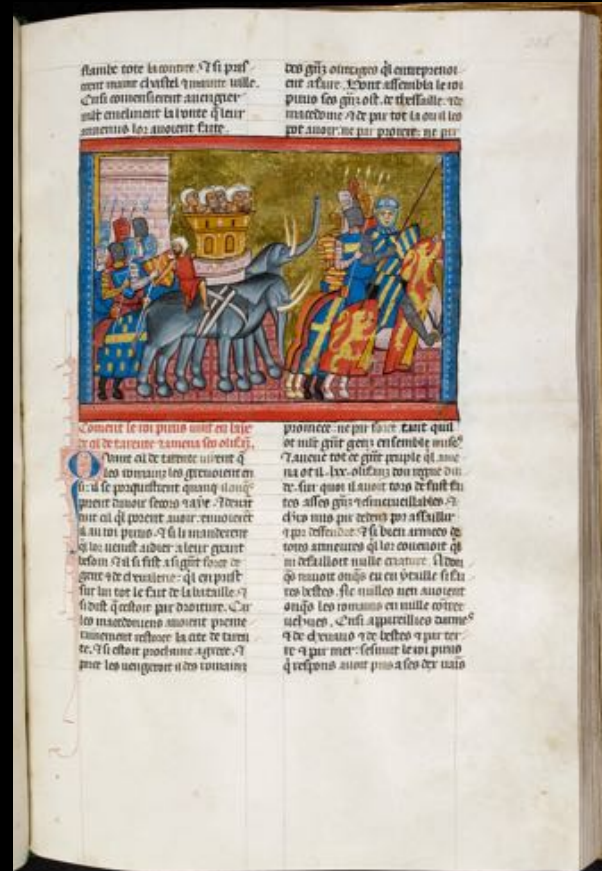 flambe tote la contree. Et si pris
trent maint chastel et mainte ville.
Ensi comensierent a vengier
mlt cruelment la honte q̃ leur
anemis lor avoient faite.
des gñz outrages ql̃ entreprenoi
ent a faire. Dont assembla le roi
pirrus ses gñz ost. de thessaille. et de
macedoine et de par tot la ou il les
pot avoir. ne par proiere. ne par
Coment le roi pirrus vint en laye
de cil de tarente et amena ses olifanz.
Quant cil de tarente virent q̃
les romainz les grevoient en
si. il se porquistrent
prent davoir secors et aye. Et
tint cil ql̃ porent avoir. envoierent
il au roi pirrus. Et si li manderent
ql̃ lor venist aidier a leur grant
besoin. Et il si fist a si grãt force de
gent et de chevalerie. ql̃ en prist
sur lui tot le fait de la bataille. et
si dist q̃ cestoit par droiture. Car
les macedoniens avoient premie
rainement restoree la cite de taren
te. Et si estoit prochaine a grece. Et
por ce les vengeroit il des romainz
promece. ne por force. tant quil
ot mlt grãt genz ensemble
Et aveuc tot ce grãt pueple ql̃ ame
na ot il .xx. olifanz dou regne din
de. sur quoi il avoit tors de fust fai
tes asses grãz et
mis par dedens por assaillir
et por deffendre. Et si bien armees de
totes armeures ql̃ lor covenoit ql̃
ni defailloit nulle
navoit onqs eu en ytaille si fai
tes bestes. Ne nulles nen avoient
onqs les romains en nulle cõtree
vehues. Ensi appareillies darmes
et de chevaus et de bestes et par ter
re et par mer. sesmut le roi pirrus
q̃ respons avoit pris a ses dex vains